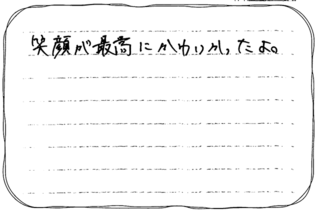 笑顔が最高にかわいかったよ。